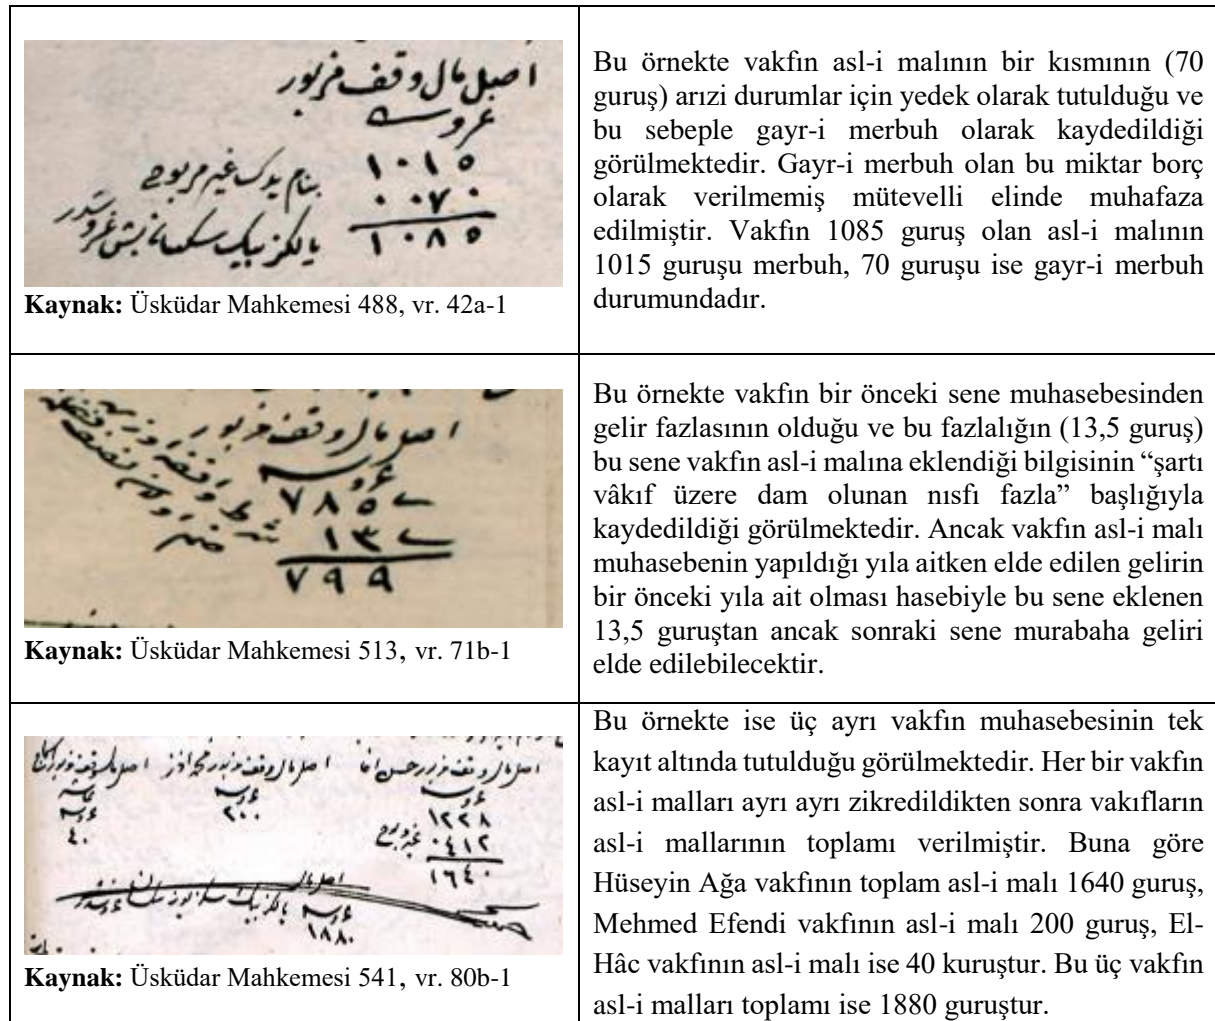 اصل مال وقف مزبور
غروش
١٠١٥
٠٠٧٠ بنام يدك غير مربوحى
١٠٨٥ يالكز بيك سكسان بش غروشدر
Kaynak: Üsküdar Mahkemesi 488, vr. 42a-1
Bu örnekte vakfın asl-i malının bir kısmının (70
guruş) arızi durumlar için yedek olarak tutulduğu ve
bu sebeple gayr-i merbuh olarak kaydedildiği
görülmektedir. Gayr-i merbuh olan bu miktar borç
olarak verilmemiş mütevelli elinde muhafaza
edilmiştir. Vakfın 1085 guruş olan asl-i malının
1015 guruşu merbuh, 70 guruşu ise gayr-i merbuh
durumundadır.
اصل مال وقف مزبور
غروش
٧٨٥
١٣
٧٩٩
Kaynak: Üsküdar Mahkemesi 513, vr. 71b-1
Bu örnekte vakfın bir önceki sene muhasebesinden
gelir fazlasının olduğu ve bu fazlalığın (13,5 guruş)
bu sene vakfın asl-i malına eklendiği bilgisinin “şartı
vâkıf üzere dam olunan nısfı fazla” başlığıyla
kaydedildiği görülmektedir. Ancak vakfın asl-i malı
muhasebenin yapıldığı yıla aitken elde edilen gelirin
bir önceki yıla ait olması hasebiyle bu sene eklenen
13,5 guruştan ancak sonraki sene murabaha geliri
elde edilebilecektir.
اصل مال وقف مزبور اصل مال وقف مزبور اصل مال وقف
غروش غروش غروش
١٢٢٨ ٢٠٠ ٤٠
٠٤١٢
١٦٤٠
اصل مال
غروش
١٨٨٠
Kaynak: Üsküdar Mahkemesi 541, vr. 80b-1
Bu örnekte ise üç ayrı vakfın muhasebesinin tek
kayıt altında tutulduğu görülmektedir. Her bir vakfın
asl-i malları ayrı ayrı zikredildikten sonra vakıfların
asl-i mallarının toplamı verilmiştir. Buna göre
Hüseyin Ağa vakfının toplam asl-i malı 1640 guruş,
Mehmed Efendi vakfının asl-i malı 200 guruş, El-
Hâc vakfının asl-i malı ise 40 kuruştur. Bu üç vakfın
asl-i malları toplamı ise 1880 guruştur.